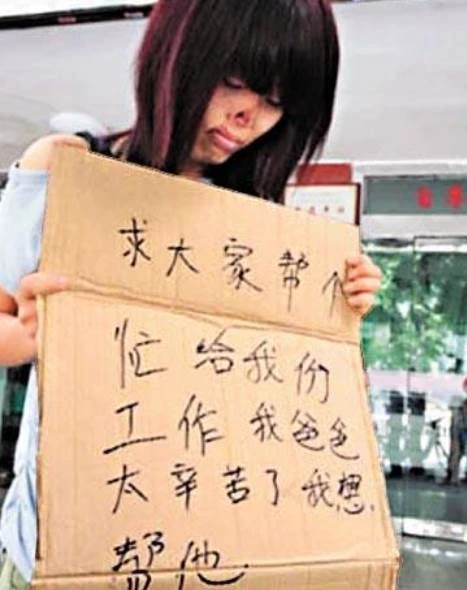 求大家帮个
忙给我份
工作我爸爸
太辛苦了我想
帮他